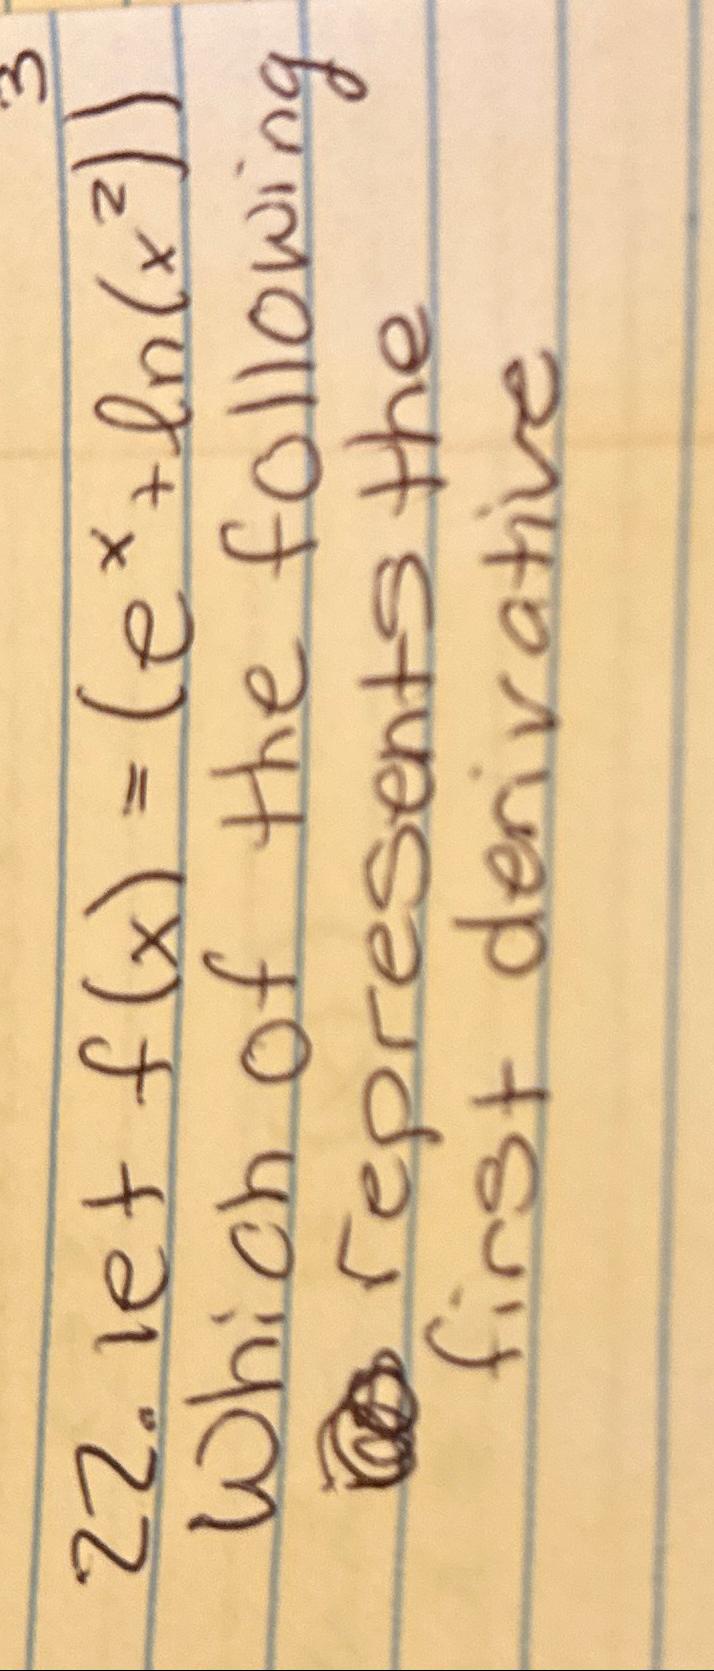 22. let f(x) = (eˣ + ln(x²))³
Which of the following
represents the
first derivative